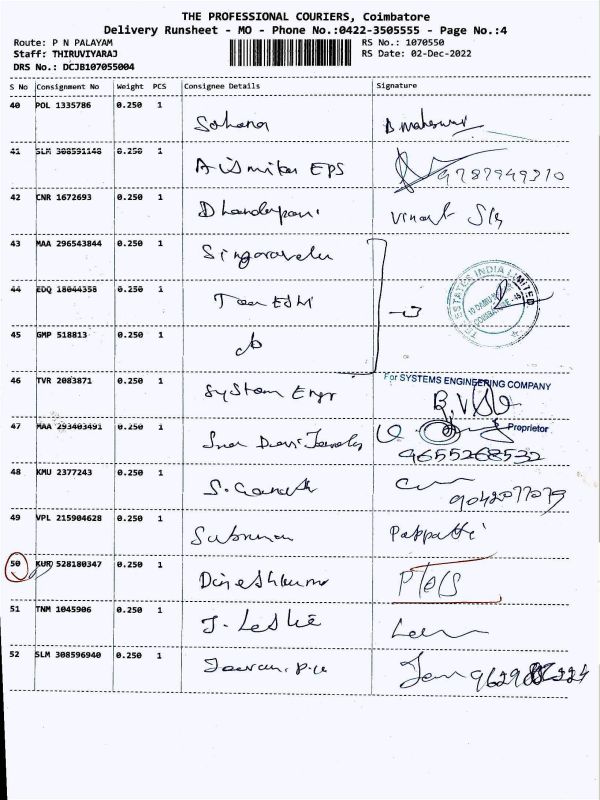 THE PROFESSIONAL COURIERS, Coimbatore
Delivery Runsheet - MO - Phone No.:0422-3505555 - Page No.:4
Route: P N PALAYAM
RS No.: 1070550
Staff: THIRUVIYARAJ
RS Date: 02-Dec-2022
DRS No.: DCJB107055004
S No Consignment No Weight PCS Consignee Details Signature
40 POL 1335786 0.250 1
Sahana B maheswari
41 SLM 308591148 0.250 1
EPS 9787949310
42 CNR 1672693 0.250 1
Dhandapani Vinoth
43 MAA 296543844 0.250 1
Singaravelu
44 EDQ 18044358 0.250 1
ESTATES INDIA LIMITED
45 GMP 518813 0.250 1
46 TVR 2083871 0.250 1
System Engr
For SYSTEMS ENGINEERING COMPANY
Proprietor
47 MAA 293403491 0.250 1
9655268532
48 KMU 2377243 0.250 1
S. Ganesh 9042077079
49 VPL 215904628 0.250 1
Pappathi
50 KUR 528180347 0.250 1
Dineshkumar
51 TNM 1045906 0.250 1
J. Leslie
52 SLM 308596940 0.250 1